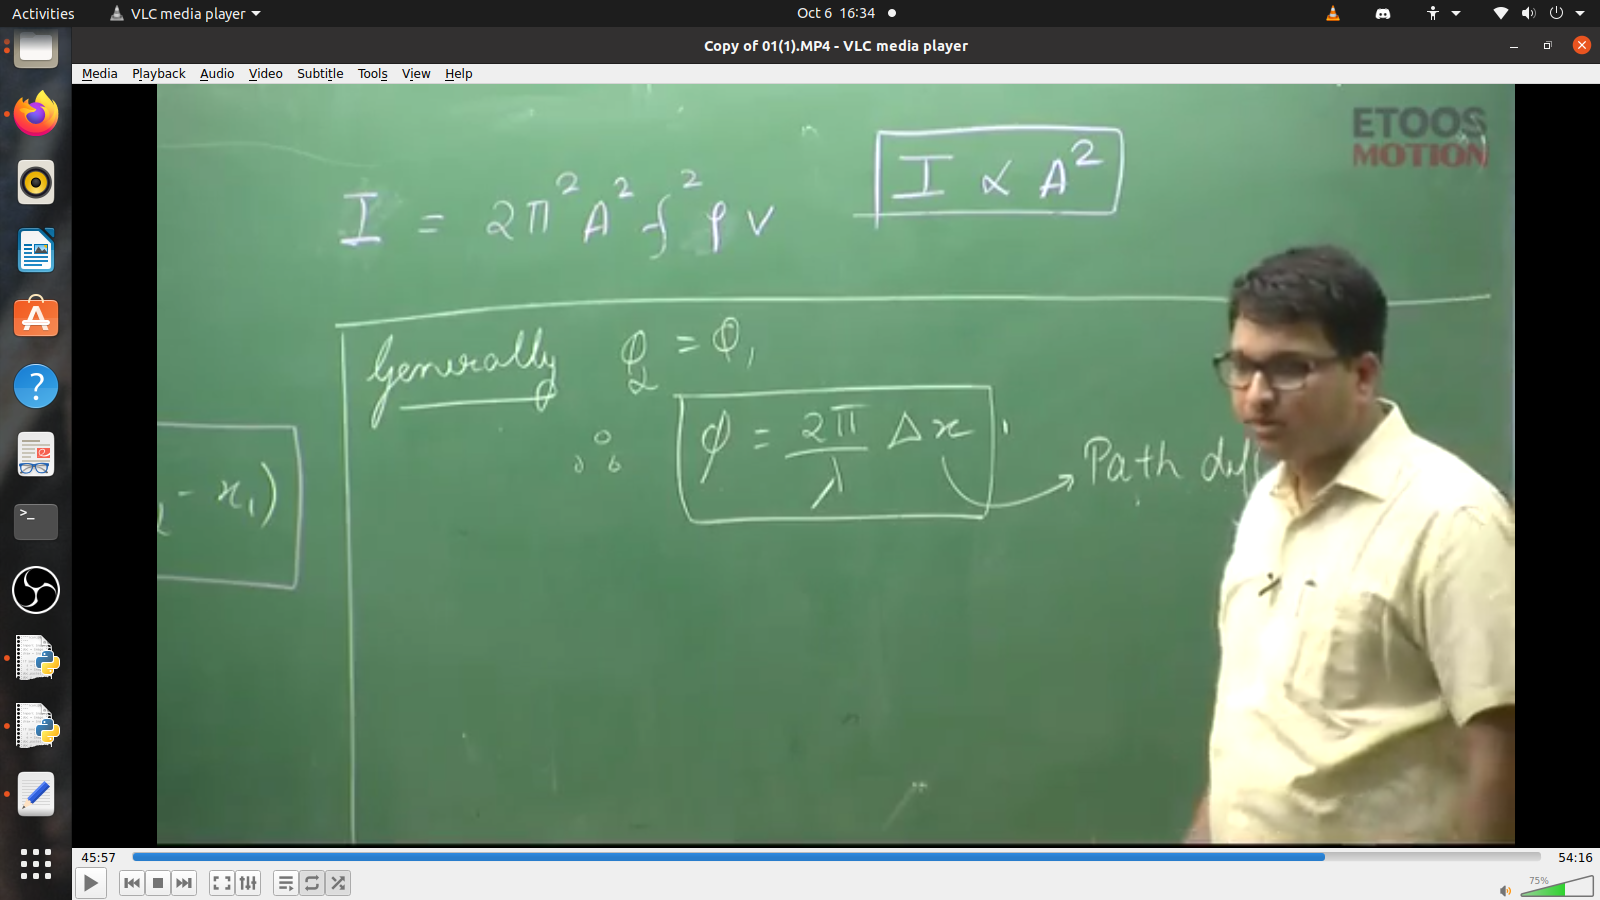 Activities
VLC media player
Oct 6 16:34
Copy of 01(1).MP4 - VLC media player
Media Playback Audio Video Subtitle Tools View Help
ETOOS
MOTION
I = 2π² A² f² ρ v
I ∝ A²
Generally φ₂ = φ₁
∴ φ = 2π/λ Δx
Path diff
- x₁)
45:57
54:16
75%